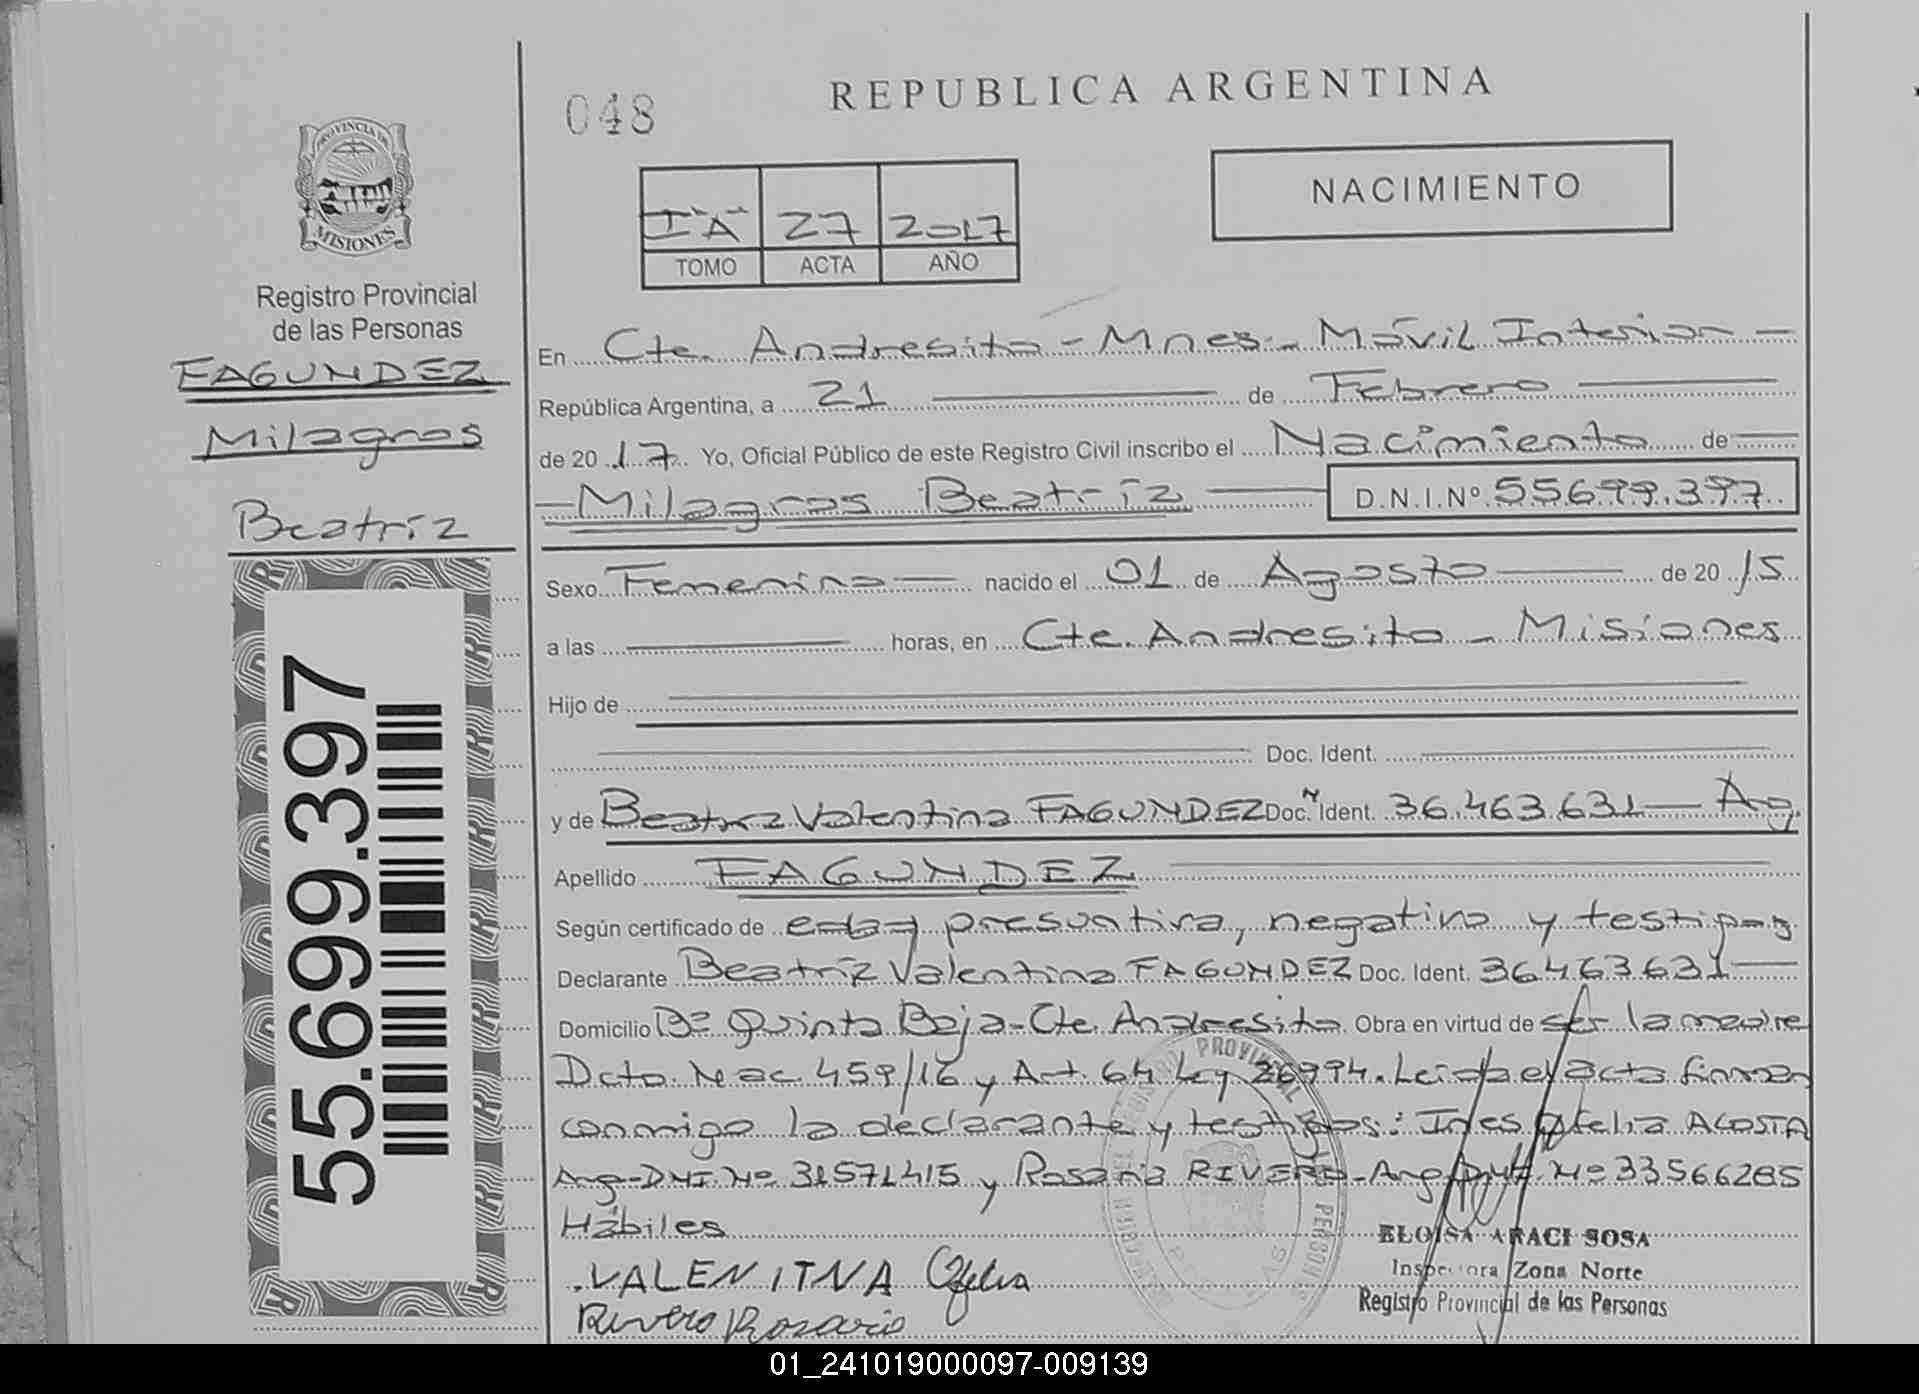 048
REPUBLICA ARGENTINA
PROVINCIA DE
MISIONES
I"A" 27 2017
TOMO ACTA AÑO
NACIMIENTO
Registro Provincial
de las Personas
FAGUNDEZ
Milagros
Beatríz
55.699.397
En Cte. Andresito - Mnes - Móvil Interior
República Argentina, a 21 de Febrero
de 20 17 Yo, Oficial Público de este Registro Civil inscribo el Nacimiento de
Milagros Beatríz D.N.I.Nº 55699.397
Sexo Femenino nacido el 01 de Agosto de 20 15
a las horas, en Cte. Andresito - Misiones
Hijo de
Doc. Ident.
y de Beatriz Valentina FAGUNDEZ Doc. Ident. 36.463.631 Arg.
Apellido FAGUNDEZ
Según certificado de edad presuntiva, negativo y testigos
Declarante Beatríz Valentina FAGUNDEZ Doc. Ident. 36463631
Domicilio Bº Quinta Baja - Cte. Andresito. Obra en virtud de ser la madre
Dcto. Nac. 459/16 y Art. 64 Ley 26994. Leida el acta firman
conmigo la declarante y testigos: Ines Ofelia ACOSTA
Arg-DNI. Nº 31571415 y Rosario RIVERO - Arg DNI. Nº 33566285
Hábiles
VALENITNA Ofelia
Rivero Rosario
ELOISA ARACI SOSA
Inspectora Zona Norte
Registro Provincial de las Personas
01_241019000097-009139